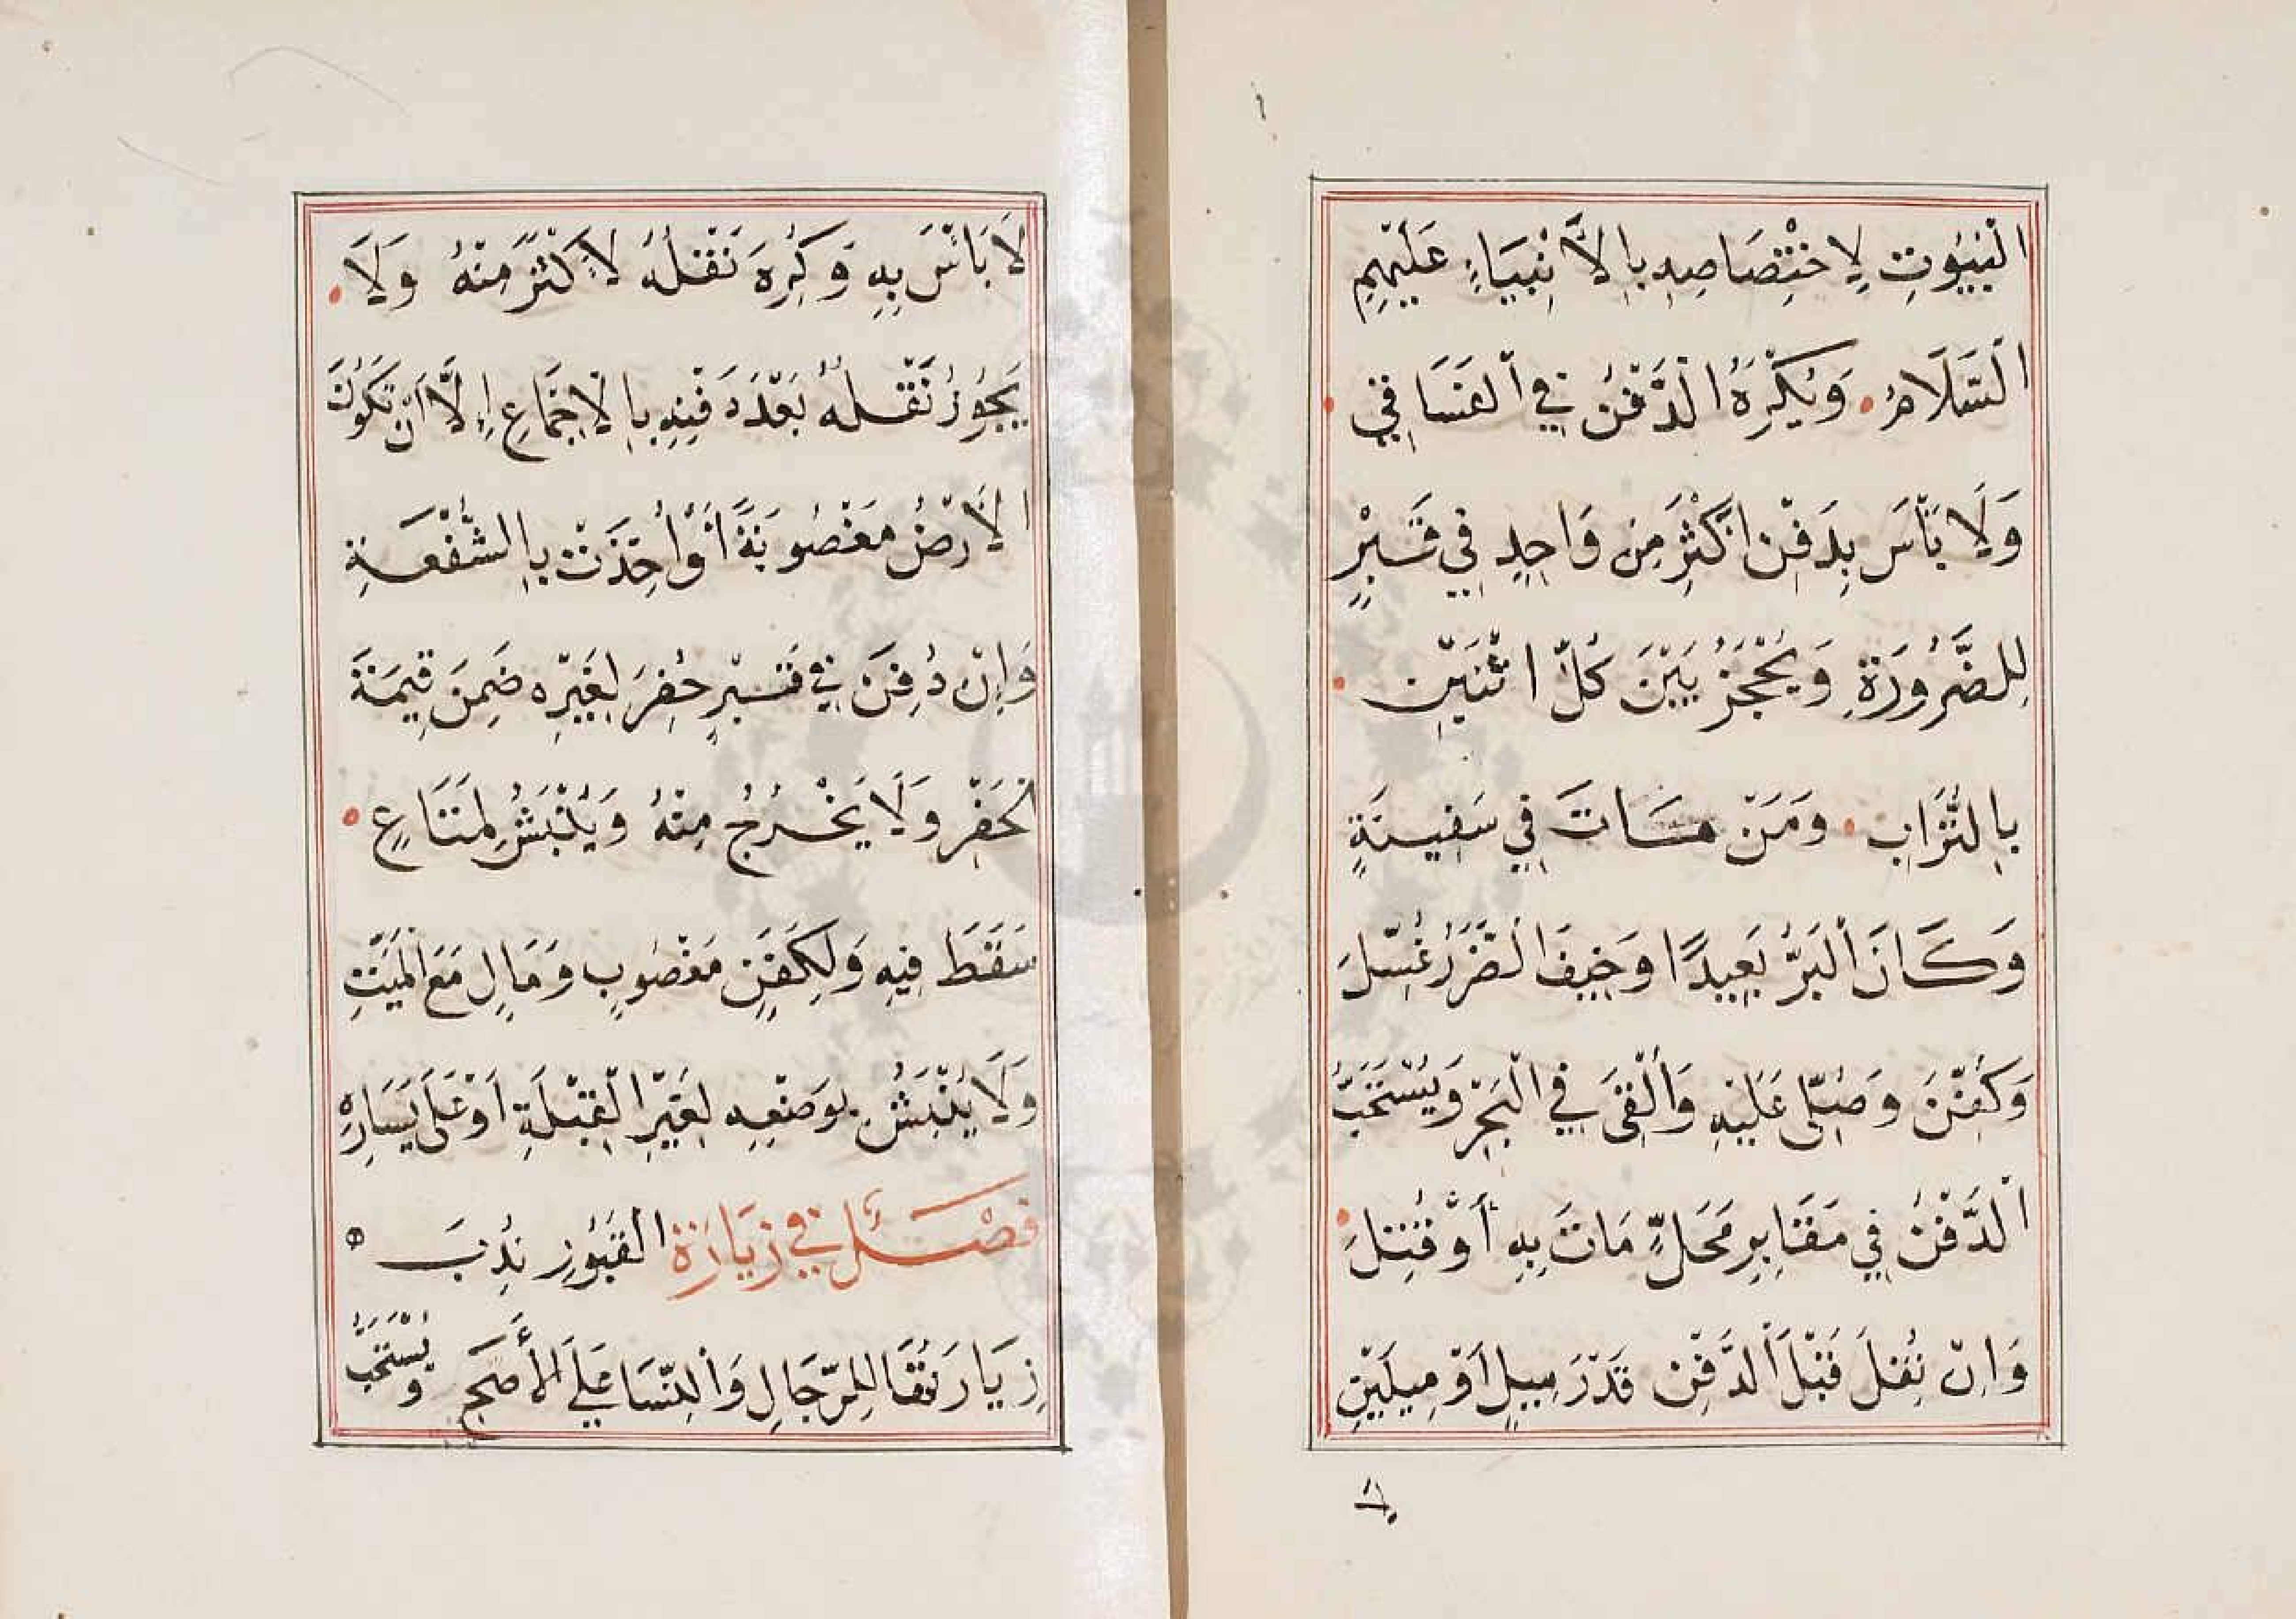 الْبُيُوتِ لِاخْتِصَاصِهِ بِالْأَنْبِيَاءِ عَلَيْهِمِ
السَّلَامُ وَيُكْرَهُ الدَّفْنُ فِي الْفَسَاقِي
وَلَا بَأْسَ بِدَفْنِ أَكْثَرَ مِنْ وَاحِدٍ فِي قَبْرٍ
لِلضَّرُورَةِ وَيُحْجَزُ بَيْنَ كُلِّ اثْنَيْنِ
بِالتُّرَابِ وَمَنْ مَاتَ فِي سَفِينَةٍ
وَكَانَ الْبَرُّ بَعِيدًا وَخِيفَ الضَّرَرُ غُسِّلَ
وَكُفِّنَ وَصُلِّيَ عَلَيْهِ وَأُلْقِيَ فِي الْبَحْرِ وَيُسْتَحَبُّ
الدَّفْنُ فِي مَقَابِرِ مَحَلٍّ مَاتَ بِهِ أَوْ قُتِلَ
وَإِنْ نُقِلَ قَبْلَ الدَّفْنِ قَدْرَ مِيلٍ أَوْ مِيلَيْنِ
لَا بَأْسَ بِهِ وَكُرِهَ نَقْلُهُ لِأَكْثَرَ مِنْهُ وَلَا
يَجُوزُ نَقْلُهُ بَعْدَ دَفْنِهِ بِالْإِجْمَاعِ إِلَّا أَنْ تَكُونَ
الْأَرْضُ مَغْصُوبَةً أَوْ أُخِذَتْ بِالشُّفْعَةِ
وَإِنْ دُفِنَ فِي قَبْرٍ حُفِرَ لِغَيْرِهِ ضَمِنَ قِيمَةَ
الْحَفْرِ وَلَا يَخْرُجُ مِنْهُ وَيُنْبَشُ لِمَتَاعٍ
سَقَطَ فِيهِ وَلِكَفَنٍ مَغْصُوبٍ وَمَالٍ مَعَ الْمَيِّتِ
وَلَا يُنْبَشُ بِوَضْعِهِ لِغَيْرِ الْقِبْلَةِ أَوْ عَلَى يَسَارِهِ
فَصْل فِي زِيَارَةِ الْقُبُورِ نُدِبَ
زِيَارَتُهَا لِلرِّجَالِ وَالنِّسَا عَلَى الْأَصَحِّ وَيُسْتَحَبُّ